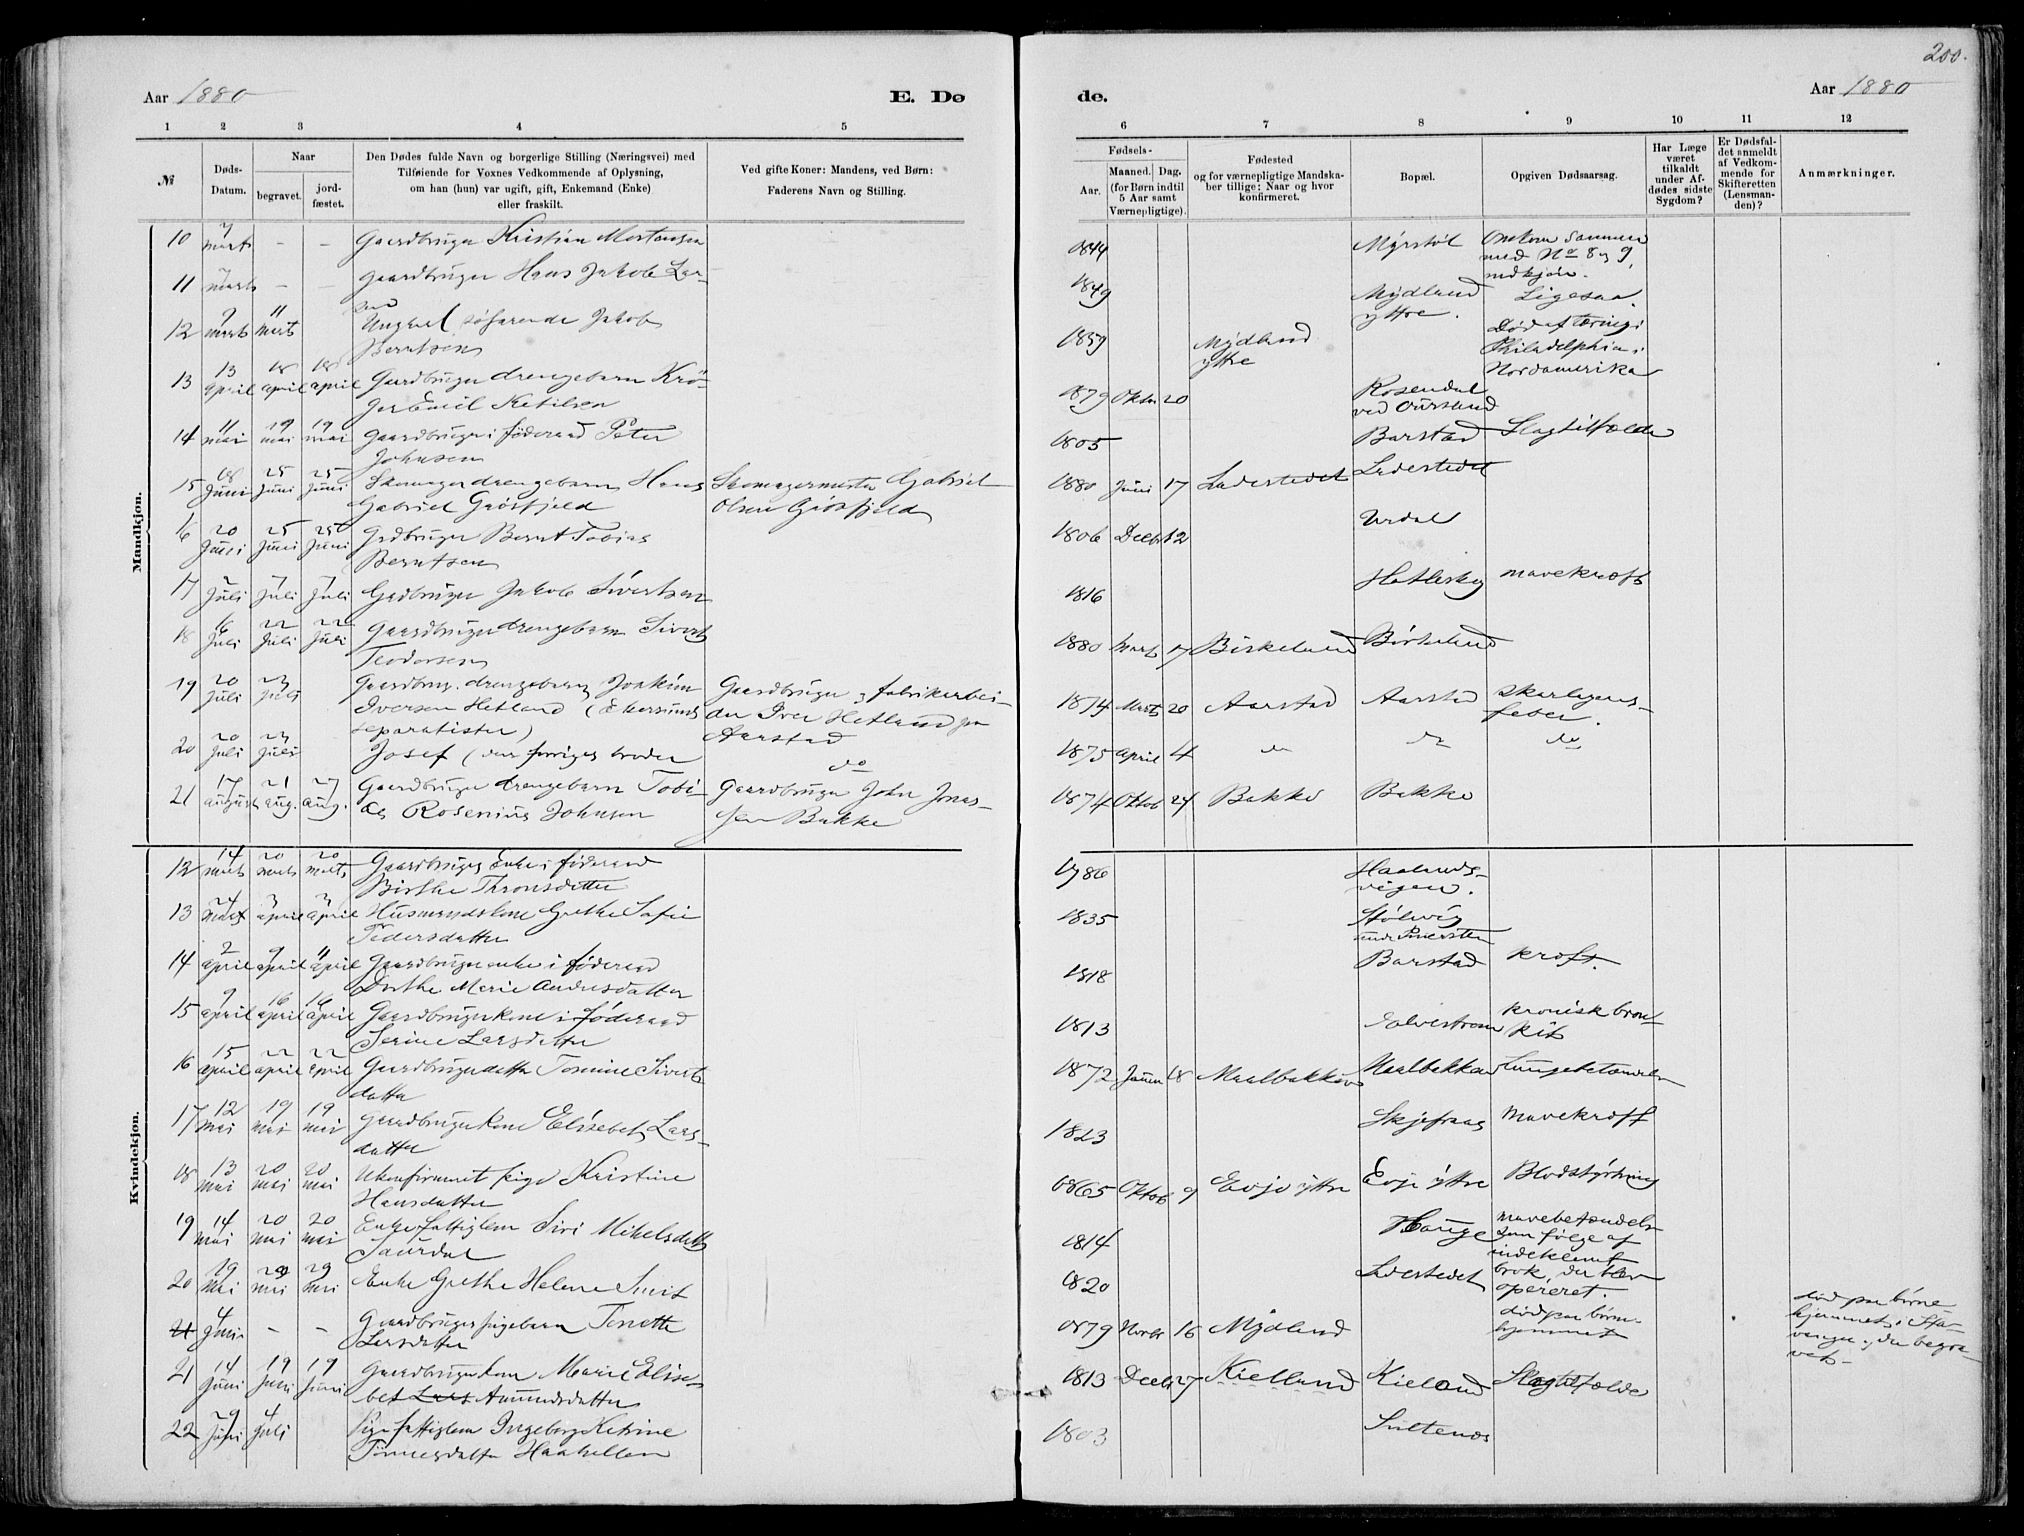 200.
Aar 1880
E. Dø
de.
Aar 1880
1 2 3 4 5 6 7 8 9 10 11 12
№
Døds-
Datum.
Naar
begravet.
jord-
fæstet.
Den Dødes fulde Navn og borgerlige Stilling (Næringsvei) med
Tilføiende for Voxnes Vedkommende af Oplysning,
om han (hun) var ugift, gift, Enkemand (Enke)
eller fraskilt.
Ved gifte Koner: Mandens, ved Børn:
Faderens Navn og Stilling.
Fødsels-
Aar.
Maaned. Dag.
(for Børn indtil
5 Aar samt
Værnepligtige).
Fødested
og for værnepligtige Mandska-
ber tillige: Naar og hvor
konfirmeret.
Bopæl.
Opgiven Dødsaarsag.
Har Læge
været
tilkaldt
under Af-
dødes sidste
Sygdom?
Er Dødsfal-
det anmeldt
af Vedkom-
mende for
Skifteretten
(Lensman-
den)?
Anmærkninger.
Mandkjøn.
10 7 marts - - Gaardbruger Kristian Mortensen 1844 Myrstøl Omkom sammen
med No 8 og 9,
11 7 marts - - Gaardbruger Hans Jakob Lar-
sen 1849 Mydland
yttre. Ligesaa.
12 7 marts 11 marts Ungkarl søfarende Jakob
Berntsen 1859 Mydland
yttre Død af tæring i
Philadelphia i
Nordamerika
13 13 april 18 april 18 april Gaardbruger drengebarn Krö-
ger Emil Ketilsen 1879 Oktbr 20 Rosendal
ved
14 11 mai 19 mai 19 mai Gaardbruger i føderaad Peter
Johnsen 1805 Barstad Slagtilfælde
15 18 Juni 25 Juni 25 Juni Skomager drengebarn Hans
Gabriel Grøsfjeld Skomagermester Gabriel
Olsen Grøsfjeld 1880 Juni 17 Ladestedet Ladestedet
16 20 Juni 25 Juni 25 Juni Grdbruger Bernt Tobias
Berntsen 1806 Decbr 12 Urdal
17 2 Juli 7 Juli 7 Juli Grdbruger Jakob Sivertsen 1816 mavekræft
18 16 Juli 22 Juli 22 Juli Gaardbruger drengebarn Sivert
Teodorsen 1880 Marts 17 Birkeland Birkeland
19 20 Juli 23 juli Gaardbrug. drengebarn Joakim
Iversen Hetland (Ekersunds
separatister) Gaardbruger og fabrikarbei-
der Iver Hetland paa
Aarstad 1874 Marts 20 Aarstad Aarstad skarlagens-
feber.
20 20 Juli 23 Juli Josef (den forriges broder do 1875 April 4 do do do
21 17 august 21 aug. 27 aug. Gaardbruger drengebarn Tobi-
as Rosenius Johnsen Gaardbruger John Jonas-
sen Bakke 1874 Oktob 24 Bakke Bakke
Kvindekjøn.
12 14 marts 20 marts 20 marts Gaardbruger Enke i føderaad
Birthe Thronsdatter 1786 Haalands-
vigen.
13 24 marts 3 april 3 april Husmandskone Grethe Sofie
Pedersdatter 1835 Stölsvig
14 2 april 9 april 11 april Gaardbrugerenke i føderaad
Dorthe Marie Andersdatter 1818 Barstad kræft.
15 9 april 16 april 16 april Gaardbrugerkone i føderaad
Serine Larsdatter 1813 kronisk bron-
kit
16 15 april 22 april 22 april Gaardbrugerdatter Tomine Siverts
datter 1872 Januar 18 Maalbakken Maalbakken Lungebetændelse
17 12 mai 19 mai 19 mai Gaardbrugerkone Elisabet Lars-
datter 1823 Skjefraas Mavekræft
18 13 mai 20 mai 20 mai Ukonfirmeret pige Kristine
Hansdatter 1865 Oktob 9 Evje yttre Evje yttre Blodstyrtning
19 14 mai 20 mai 20 mai Enke fattiglem Siri Mikelsdatter
Saurdal 1814 Hauge mavebetændelse
som følge af
indeklemt
brok, der blev
opereret.
20 19 mai 29 mai 29 mai Enke Grethe Helene Smit 1820 Ladestedet
21 4 Juni - - Gaardbruger pigebarn Tonette
Larsdatter 1879 Novbr 16 Mydland død paa børne-
hjemmet død paa børne
hjemmet i Sta-
vanger og der begra-
vet-
21 14 Juni 19 Juni 19 Juni Gaardbrugerkone Marie Elisa-
bet Lars Amundsdatter 1813 Decbr 27 Kielland Kieland Slagtilfælde
22 29 Juni 4 Juli Pige fattiglem Ingeborg Katrine
Tönnesdatter Haahellen 1803 Sultenes